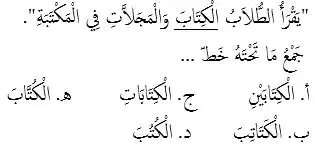 "يَقْرَأُ الطُّلاَبُ الْكِتَابَ وَالْمَجَلاَّتِ فِي الْمَكْتَبَةِ".
جَمْعُ مَا تَحْتَهُ خَطّ ...
أ. الْكِتَابَيْنِ ج. الْكِتَابَاتِ هـ. الْكُتَّابَ
ب. الْكَتَاتِبَ د. الْكُتُبَ